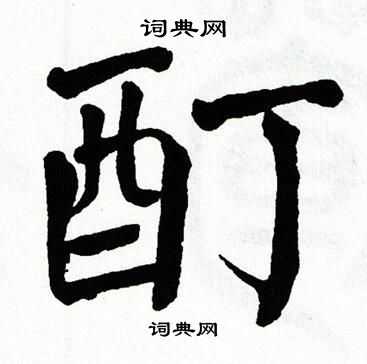 词典网
酊
词典网